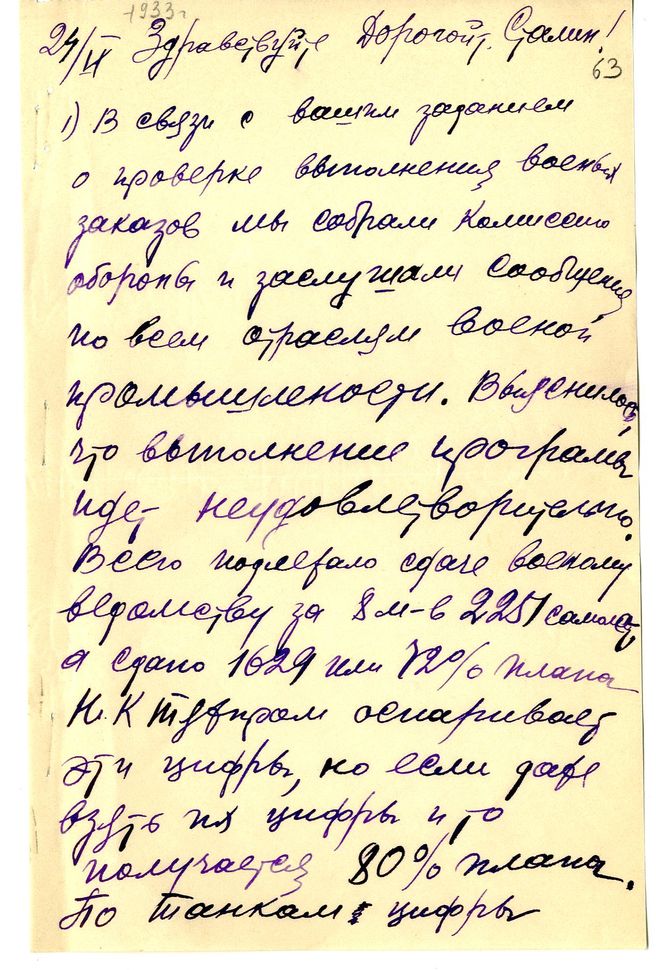 1933 г
24/IX Здравствуйте Дорогой т. Сталин!
63
1) В связи с вашим заданием
о проверке выполнения военых
заказов мы собрали Комиссию
обороны и заслушали сообщения
по всем отраслям военой
промышлености. Выяснилось,
что выполнение програмы
идет неудовлетворительно.
Всего подлежало сдаче военому
ведомству за 8 м-в 2251 самолет,
а сдано 1629 или 72% плана
Н.К Тяжпром оспаривает
эти цифры, но если даже
взять их цифры и то
получается 80% плана.
По танкам цифры